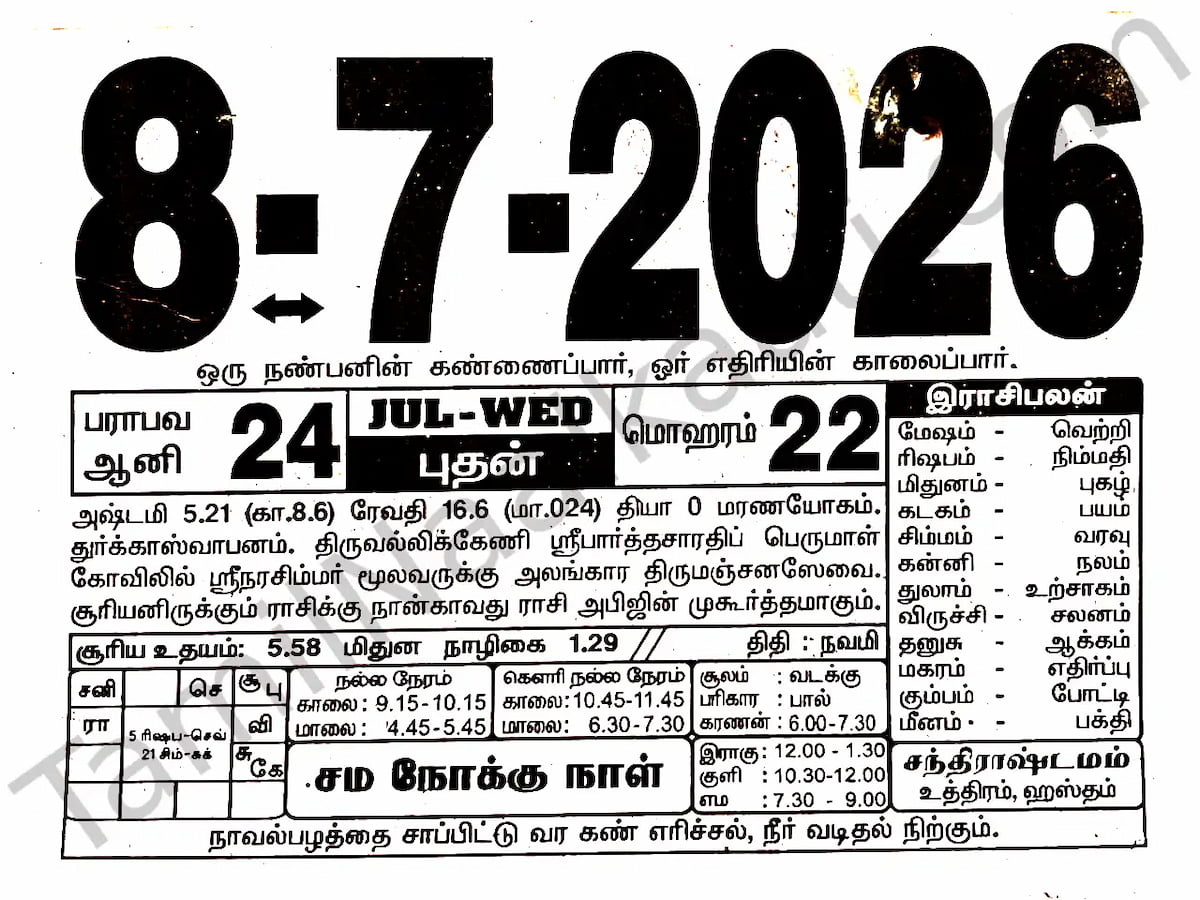 8-7-2026
ஒரு நண்பனின் கண்ணைப்பார், ஓர் எதிரியின் காலைப்பார்.
பராபவ
ஆனி 24
JUL-WED
புதன்
மொஹரம் 22
அஷ்டமி 5.21 (கா.8.6) ரேவதி 16.6 (மா.024) தியா 0 மரணயோகம்.
துர்க்காஸ்வாபனம். திருவல்லிக்கேணி ஸ்ரீபார்த்தசாரதிப் பெருமாள்
கோவிலில் ஸ்ரீநரசிம்மர் மூலவருக்கு அலங்கார திருமஞ்சனஸேவை.
சூரியனிருக்கும் ராசிக்கு நான்காவது ராசி அபிஜின் முகூர்த்தமாகும்.
சூரிய உதயம்: 5.58 மிதுன நாழிகை 1.29 // திதி : நவமி
இராசிபலன்
மேஷம் - வெற்றி
ரிஷபம் - நிம்மதி
மிதுனம் - புகழ்
கடகம் - பயம்
சிம்மம் - வரவு
கன்னி - நலம்
துலாம் - உற்சாகம்
விருச்சி - சலனம்
தனுசு - ஆக்கம்
மகரம் - எதிர்ப்பு
கும்பம் - போட்டி
மீனம் - பக்தி
சனி செ சூ பு
ரா வி
5 ரிஷப-செவ்
21 சிம்-சுக்
சு கே
நல்ல நேரம்
காலை: 9.15-10.15
மாலை: 4.45-5.45
கௌரி நல்ல நேரம்
காலை: 10.45-11.45
மாலை: 6.30-7.30
சூலம் : வடக்கு
பரிகார : பால்
கரணன் : 6.00-7.30
சம நோக்கு நாள்
இராகு : 12.00 - 1.30
குளி : 10.30-12.00
எம : 7.30 - 9.00
சந்திராஷ்டமம்
உத்திரம், ஹஸ்தம்
நாவல்பழத்தை சாப்பிட்டு வர கண் எரிச்சல், நீர் வடிதல் நிற்கும்.
TamilNaalkaatti.com